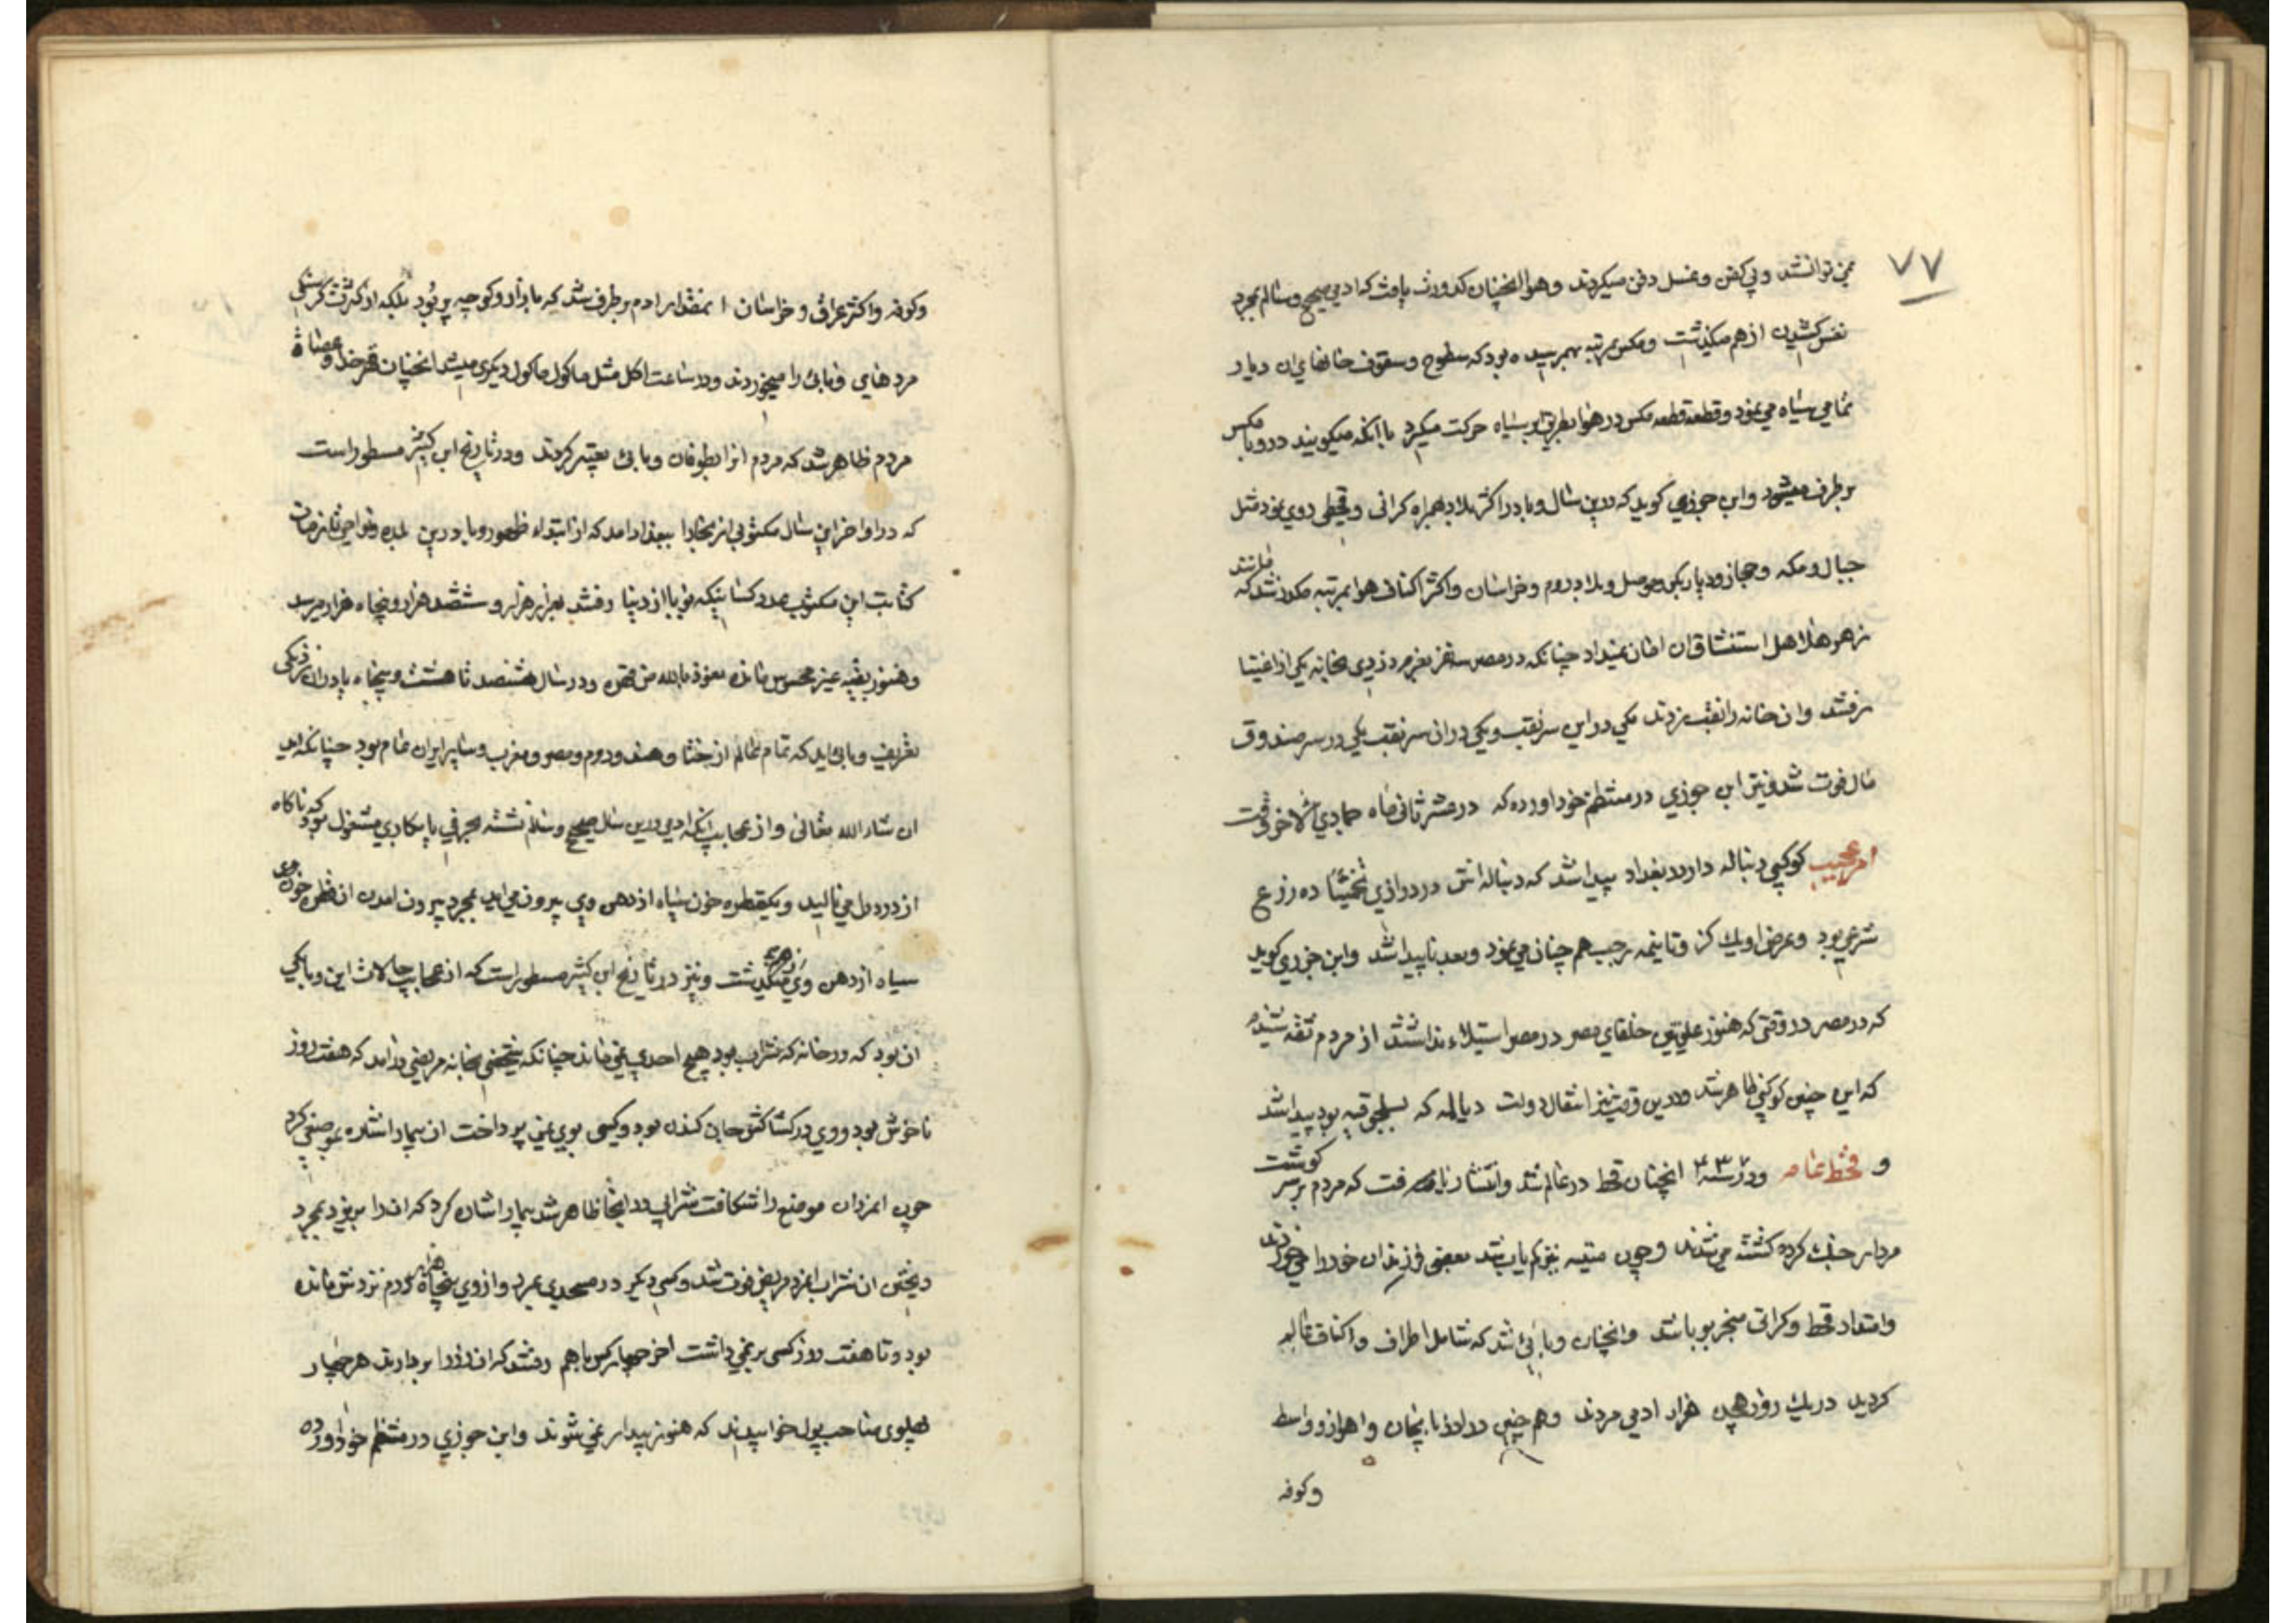 ۷۷
نمی توانشد وبی کفن وغسل دفن میکردند وهوا انچنان کدورت یافت که ادمی صحیح وسالم بمجرد
نفس کشیدن ازهم میکذشت ومکس بمرتبه بهم رسیده بود که سطوح وسقوف خانهای ان دیار
تمامی سیاه می نمود وقطعه قطعه مکس در هوا بطریق ابر سیاه حرکت میکرد با انکه میکویند در وبا مکس
بر طرف میشود وابن جوزی کوید که درین سال وبا در اکثر بلاد بهمراه کرانی وقحطی روی نمود مثل
جبال ومکه وحجاز ودیار بکر وموصل وبلاد روم وخراسان واکثر اکناف هوا بمرتبه مکدر شد که مانند
زهر هلاهل استنشاق ان امان نمیداد چنانکه در مصر سه نفر دزدی بخانه یکی از اغنیا
رفتند وان خانه را نقب زدند یکی در این سر نقب ویکی در ان سر نقب یکی در سر صندوق
مال فوت شد ونیز ابن جوزی در منتظم خود اورده که در عشر ثانی ماه جمادی الاخر وقت
امر عجیب کوکبی دنباله دار در بغداد پیدا شد که دنباله اش در درازی تخمینا ده زرع
شرعی بود وعرض او یك کز وتا نیمه رجب هم چنان می نمود وبعد ناپیدا شد وابن جزری کوید
که در مصر در وقتی که هنوز علویین خلفای مصر در مصر استیلاء نداشتند از مردم ثقه شنیدم
که این چنین کوکبی ظاهر شد ودرین وقت نیز انتقال دولت دیالمه که بسلجوقیه بود پیدا شد
و قحط عامه ودر سنه ۴۳۲ انچنان قحط در عالم شد وانتشار یافت که مردم بر سر کوشت
مردار جنك کرده کشته می شدند وچون میته نیز کم یاب شد بعضی فرزندان خود را می خوردند
وامتداد قحط وکرانی منجر بوبا شد وانچنان وبائی شد که شامل اطراف واکناف عالم
کردید در یك روز هجده هزار ادمی مردند وهم چنین در اذربایجان واهواز وواسط
وکوفه
وکوفه واکثر عراق وخراسان انمقدار ادم بر طرف شد که بازار وکوچه پر بود بلکه از کثرت کرسنکی
مردهای وبائی را میخوردند ودر ساعت اکل مثل ماکول ماکول دیکری میشد انچنان قهر خدا وعصاة
مردم ظاهر شد که مردم انرا بطوفان وبائی تعبیر کردند ودر تاریخ ابن کثیر مسطور است
که در اواخر این سال مکتوبی از بخارا ببغداد امد که از ابتداء ظهور وبا درین بلده ونواحی تا زمان
کتابت این مکتوب عدد کسانیکه بوبا از دنیا رفتند بهزار هزار وششصد هزار وپنجاه هزار میرسد
وهنوز بقیه غیر محسوس مانده نعوذ بالله من قهره ودر سال هشتصد تا هشت وپنجاه یاد دران نزدیکی
تعریف وبائی اید که تمام عالم از ختا وهند وروم ومصر ومغرب وسایر ایران عام بود چنانکه اید
ان شاء الله تعالی واز عجایب انکه ادمی درین سال صحیح وسالم نشسته بحرفی یا بکاری مشغول بود که ناکاه
از درد دل می نالید ویکقطره خون سیاه از دهن وی بیرون می امد بمجرد بیرون امدن ان قطره خون
سیاه از دهن وی میکذشت ونیز در تاریخ ابن کثیر مسطور است که از عجایب حالات این وبا یکی
ان بود که در خانه که شراب بود هیچ احدی نمی ماند چنانکه شخصی بخانه مریضی درامد که هفت روز
ناخوش بود ووی در کشاکش جان کندن بود وکسی بوی نمی پرداخت ان بیمار اشاره بموضعی کرد
چون انمردان موضع را شکافت شرابی در انجا ظاهر شد بیمار اشارت کرد که انرا بریزد بمجرد
ریختن ان شراب انمرد مریض فوت شد وکسی دیکر در مسجدی بمرد واز وی پنجاه هزار درم نزدش مانده
بود وتا هفت روز کسی بر نمی داشت اخر چهار کس باهم رفتند که ان زر را بر دارند هر چهار
پهلوی صاحب پول خوابیدند که هنوز بیدار نمی شوند وابن جوزی در منتظم خود اورده